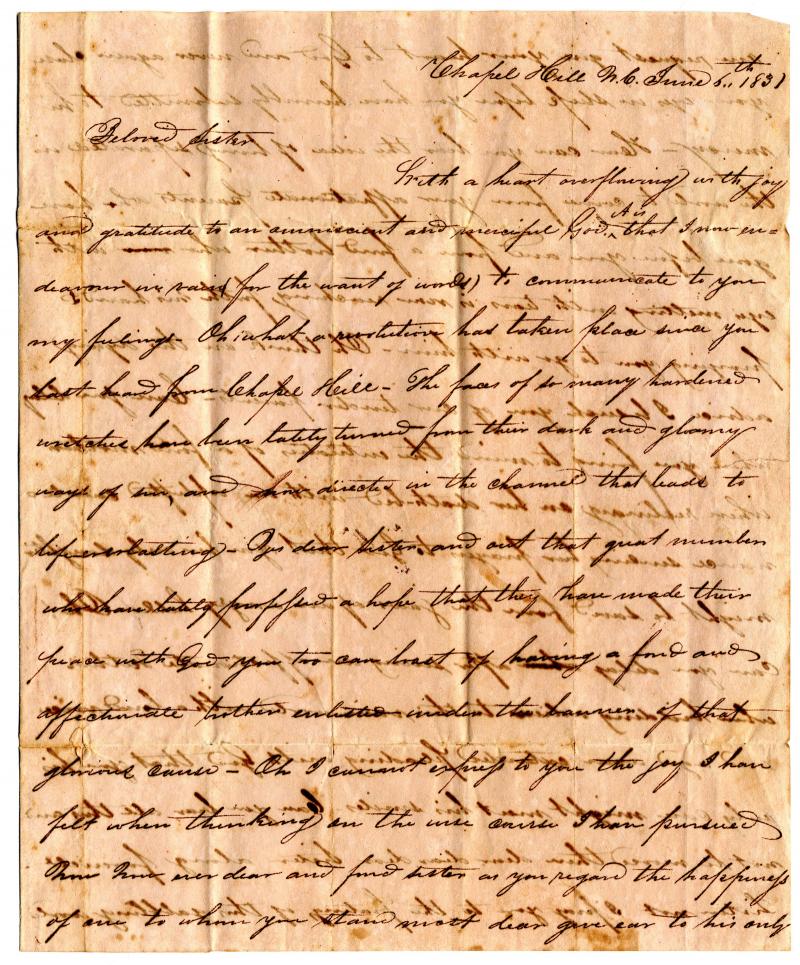 Chapel Hill N.C. June 6th, 1831
Beloved Sister
With a heart overflowing with joy
and gratitude to an omniscient and merciful God, it is that I now en=
deavour in vain (for the want of words) to communicate to you
my feelings - Oh, what a revolution has taken place since you
last heard from Chapel Hill - The faces of so many hardened
wretches have been lately turned from their dark and gloomy
ways of sin, and now directed in the channel that leads to
life everlasting - Yes dear sister, and out that great number
who have lately professed a hope that they have made their
peace with God you too can boast of having a fond and
affectionate brother enlisted under the banner of that
glorious cause - Oh I cannot express to you the joy I have
felt when thinking on the wise course I have pursued
Now ever dear and fond sister as you regard the happiness
of one to whom you stand most dear give ear to his only